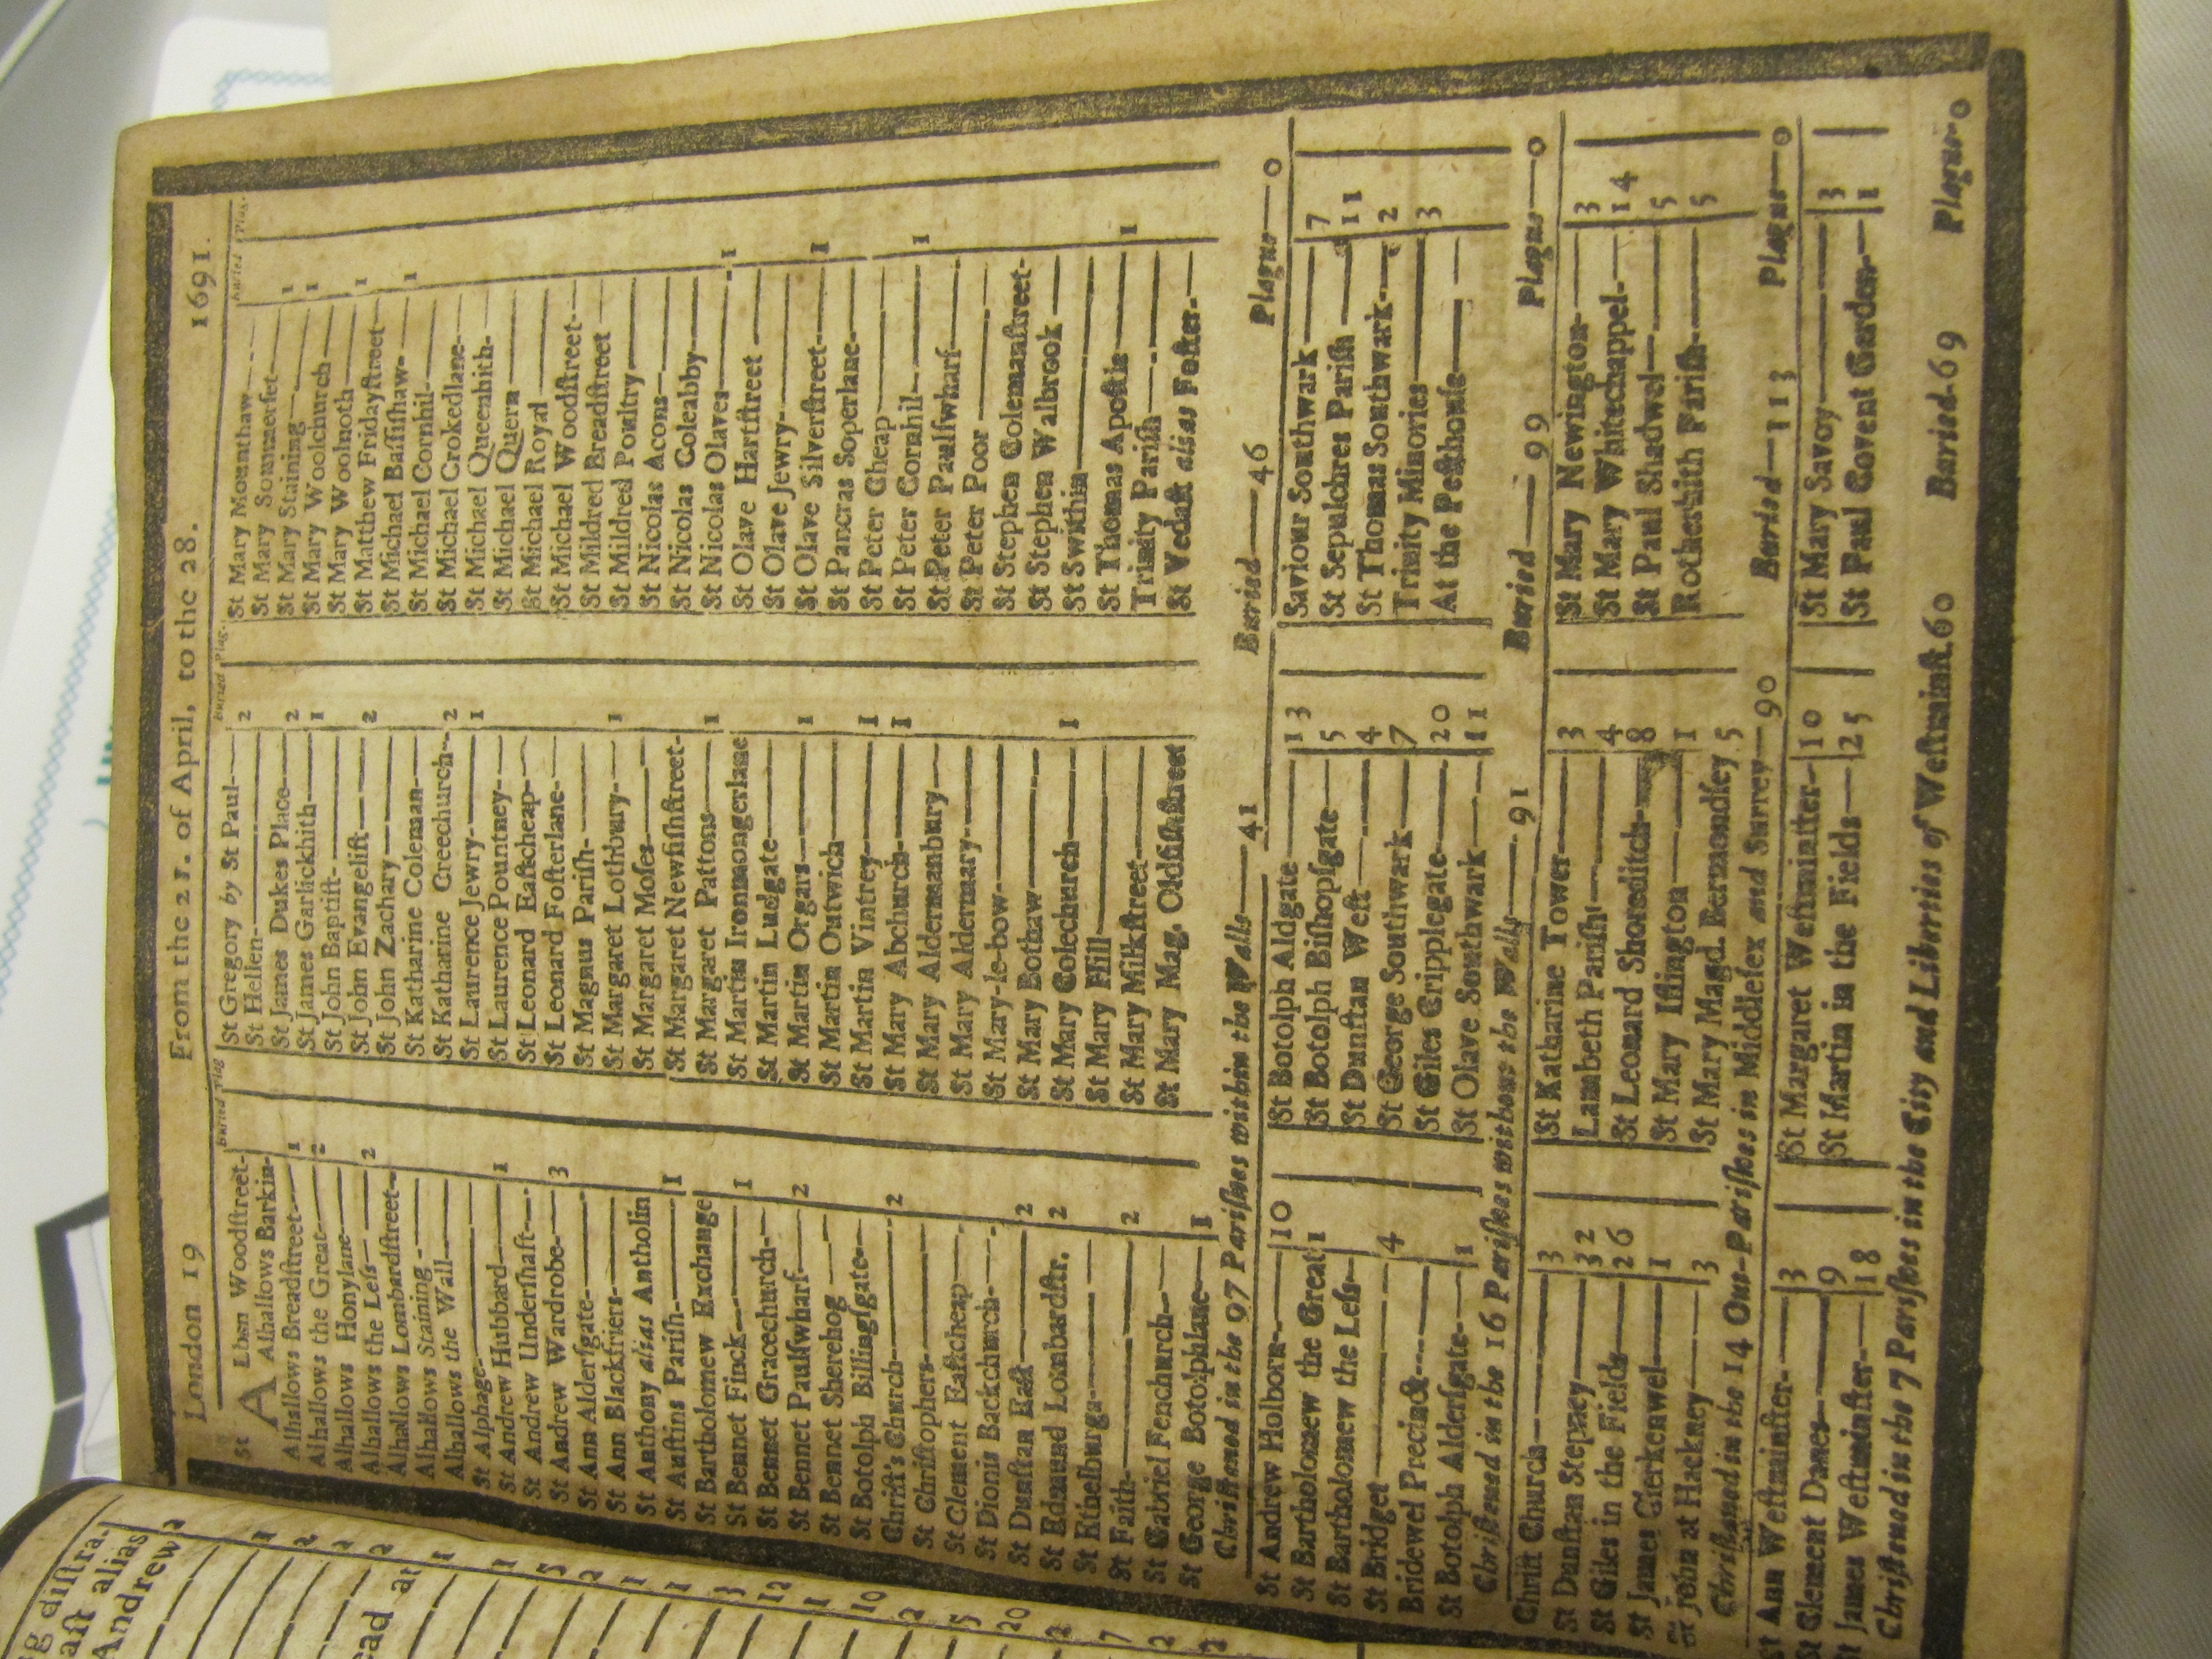 London 19 From the 21. of April, to the 28. 1691.
Buried Plag
St ALban Woodſtreet-
Alhallows Barkin-
Alhallows Breadſtreet 1
Alhallows the Great 2
Alhallows Honylane
Alhallows the Leſs 2
Alhallows Lombardſtreet
Alhallows Staining
Alhallows the Wall
St Alphage
St Andrew Hubbard 1
St Andrew Underſhaft
St Andrew Wardrobe 3
St Ann Alderſgate
St Ann Blackfriers
St Anthony alias Antholin
St Auſtins Pariſh 1
St Bartholomew Exchange
St Bennet Finck 1
St Bennet Gracechurch
St Bennet Paulſwharf 2
St Bennet Sherehog
St Botolph Billingſgate
Chriſt's Church 2
St Chriſtophers
St Clement Eaſtcheap
St Dionis Backchurch
St Dunſtan Eaſt 2
St Edmund Lombardſtr. 2
St Ethelburga
St Faith 2
St Gabriel Fenchurch
St George Botolphlane 1
Buried Plag.
St Gregory by St Paul 2
St Hellen
St James Dukes Place 2
St James Garlickhith 1
St John Baptiſt
St John Evangeliſt 2
St John Zachary
St Katharine Coleman
St Katharine Creechurch 2
St Laurence Jewry 1
St Laurence Pountney
St Leonard Eaſtcheap
St Leonard Foſterlane
St Magnus Pariſh
St Margaret Lothbury 1
St Margaret Moſes
St Margaret Newfiſhſtreet
St Margaret Pattons 1
St Martin Ironmongerlane
St Martin Ludgate
St Martin Orgars 1
St Martin Outwich
St Martin Vintrey 1
St Mary Abchurch 1
St Mary Aldermanbury
St Mary Aldermary
St Mary-le-bow
St Mary Bothaw
St Mary Colechurch 1
St Mary Hill
St Mary Milkſtreet
St Mary Mag. Oldfiſhſtreet
Buried Plag.
St Mary Mounthaw
St Mary Sommerſet 1
St Mary Staining 1
St Mary Woolchurch
St Mary Woolnoth 1
St Matthew Fridayſtreet
St Michael Baſſiſhaw 1
St Michael Cornhil
St Michael Crokedlane
St Michael Queenhith
St Michael Quern
St Michael Royal
St Michael Woodſtreet
St Mildred Breadſtreet
St Mildred Poultry
St Nicolas Acons
St Nicolas Coleabby
St Nicolas Olaves 1
St Olave Hartſtreet
St Olave Jewry
St Olave Silverſtreet 1
St Pancras Soperlane
St Peter Cheap
St Peter Cornhil 1
St Peter Paulſwharf
St Peter Poor
St Stephen Colemanſtreet
St Stephen Walbrook
St Swithin
St Thomas Apoſtle 1
Trinity Pariſh
St Vedaſt alias Foſter
Chriſtened in the 97 Pariſhes within the Walls 41 Buried 46 Plague 0
St Andrew Holborn 10
St Bartholomew the Great 1
St Bartholomew the Leſs
St Bridget 4
Bridewel Precinct
St Botolph Alderſgate 1
St Botolph Aldgate 13
St Botolph Biſhopſgate 5
St Dunſtan Weſt 4
St George Southwark 7
St Giles Cripplegate 20
St Olave Southwark 11
Saviour Southwark 7
St Sepulchres Pariſh 11
St Thomas Southwark 2
Trinity Minories 3
At the Peſthouſe
Chriſtened in the 16 Pariſhes without the Walls 91 Buried 99 Plague 0
Chriſt Church 3
St Dunſtan Stepney 32
St Giles in the Fields 26
St James Clerkenwel 1
St John at Hackney 3
St Katharine Tower 3
Lambeth Pariſh 4
St Leonard Shoreditch 8
St Mary Iſlington 1
St Mary Magd. Bermondſey 5
St Mary Newington 3
St Mary Whitechappel 14
St Paul Shadwel 5
Rotherhith Pariſh 5
Chriſtened in the 14 Out-Pariſhes in Middleſex and Surrey 90 Buried 113 Plague 0
St Ann Weſtminſter 3
St Clement Danes 9
St James Weſtminſter 18
St Margaret Weſtminſter 10
St Martin in the Fields 25
St Mary Savoy 3
St Paul Covent Garden 1
Chriſtened in the 7 Pariſhes in the City and Liberties of Weſtminſt. 60 Buried 69 Plague 0
diſtra-
aſt alias
Andrew 2
1
2
2
2
ead at 1
1
5
2
1
1
3
12
1
10
2
5
20
2
7
2
2